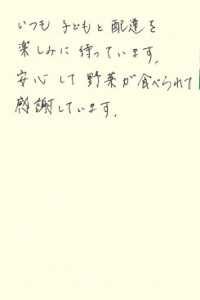 いつも 子どもと 配達を
楽しみに 待っています。
安心して 野菜が食べられて
感謝しています。